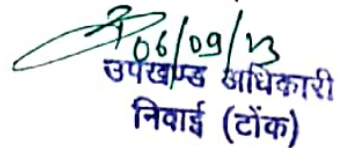 06/09/23
उपखण्ड अधिकारी
निवाई (टोंक)